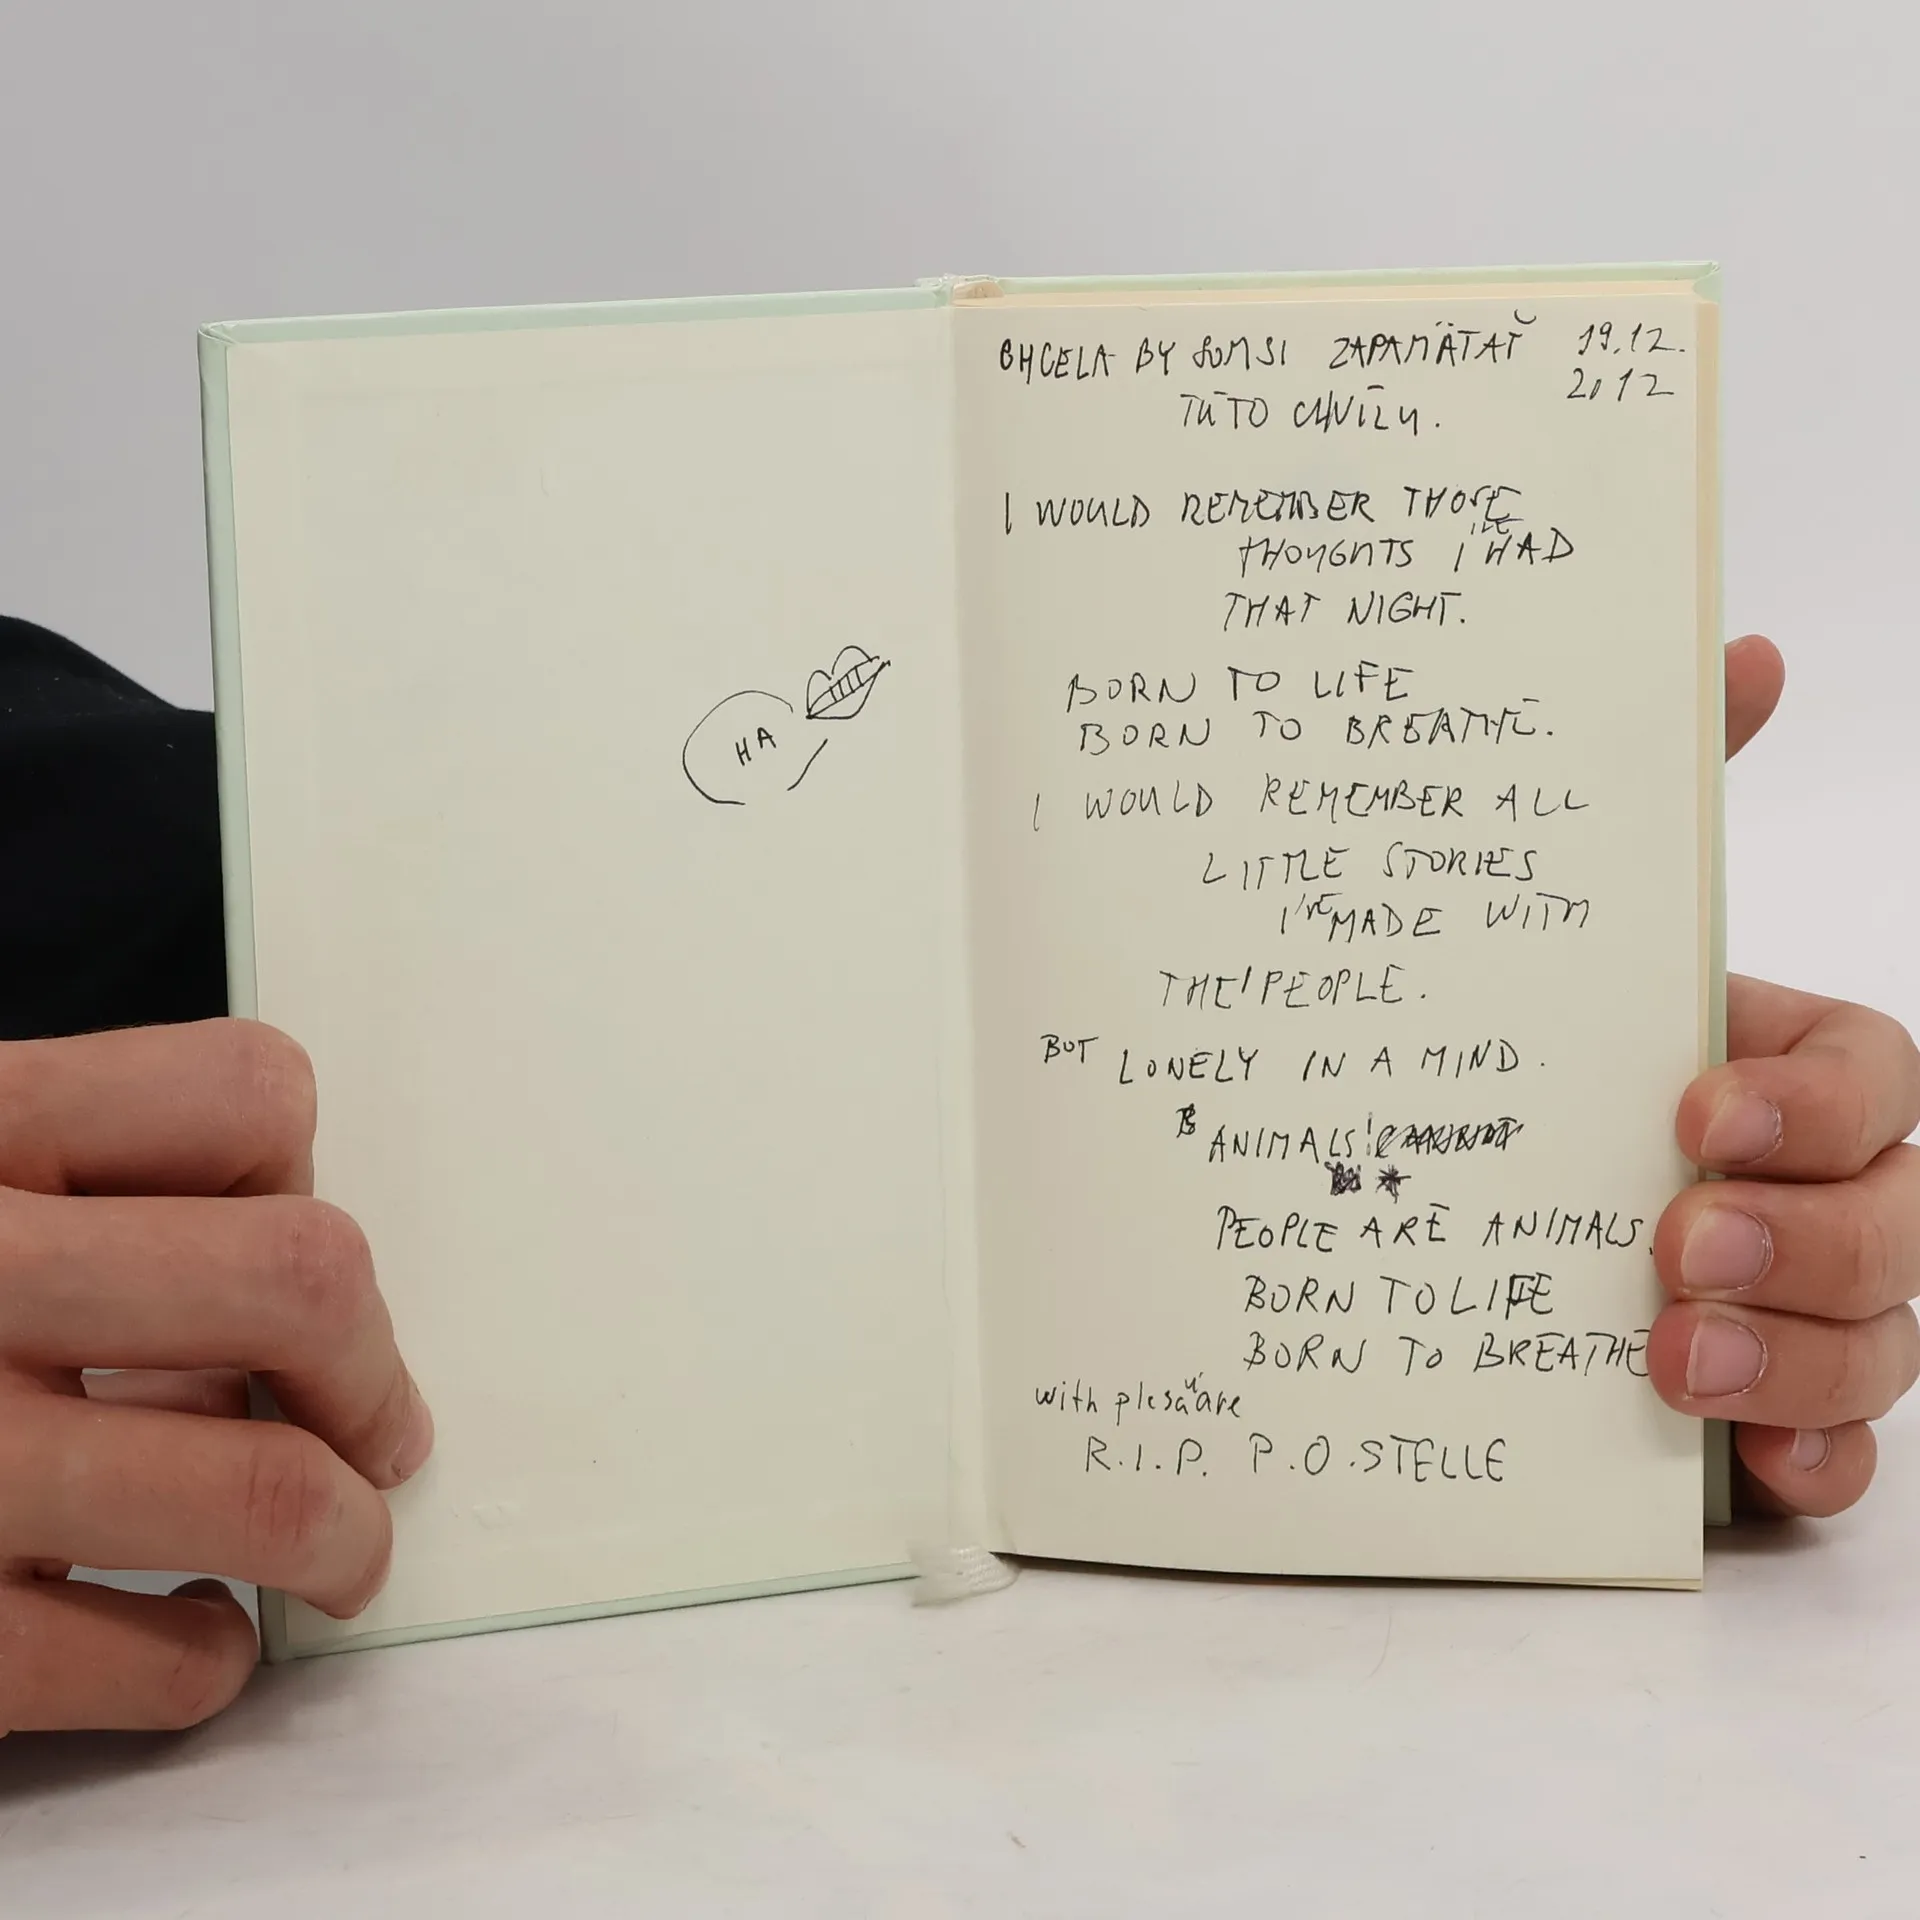 HA
CHCELA BY SOM SI ZAPAMÄTAŤ 19.12.
2012
TÚTO CHVÍĽU.
I WOULD REMEMBER THOSE
THOUGHTS I'VE HAD
THAT NIGHT.
BORN TO LIFE
BORN TO BREATHE.
I WOULD REMEMBER ALL
LITTLE STORIES
I'VE MADE WITH
THE PEOPLE.
BUT LONELY IN A MIND.
ANIMALS!
PEOPLE ARE ANIMALS.
BORN TO LIFE
BORN TO BREATHE
with
R.I.P. P.O.STELLE